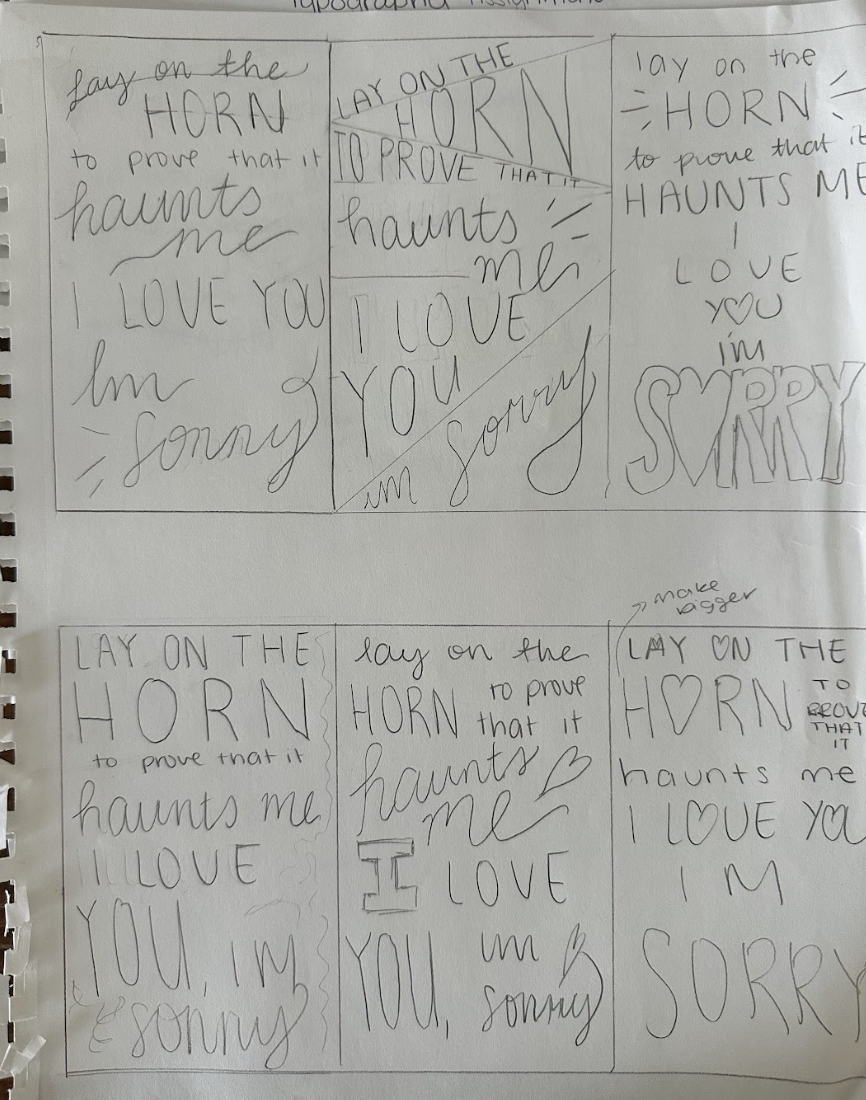 Typography Assignment
lay on the
HORN
to prove that it
haunts
me
I LOVE YOU
Im
sorry
LAY ON THE
HORN
TO PROVE THAT IT
haunts
me
I LOVE
YOU
im sorry
lay on the
HORN
to prove that it
HAUNTS ME
I
LOVE
YOU
i'm
SORRY
make
bigger
LAY ON THE
HORN
to prove that it
haunts me
I LOVE
YOU, IM
sorry
lay on the
HORN to prove
that it
haunts
me
I LOVE
YOU, im
sorry
LAY ON THE
HORN TO
PROVE
THAT
IT
haunts me
I LOVE YOU
IM
SORRY